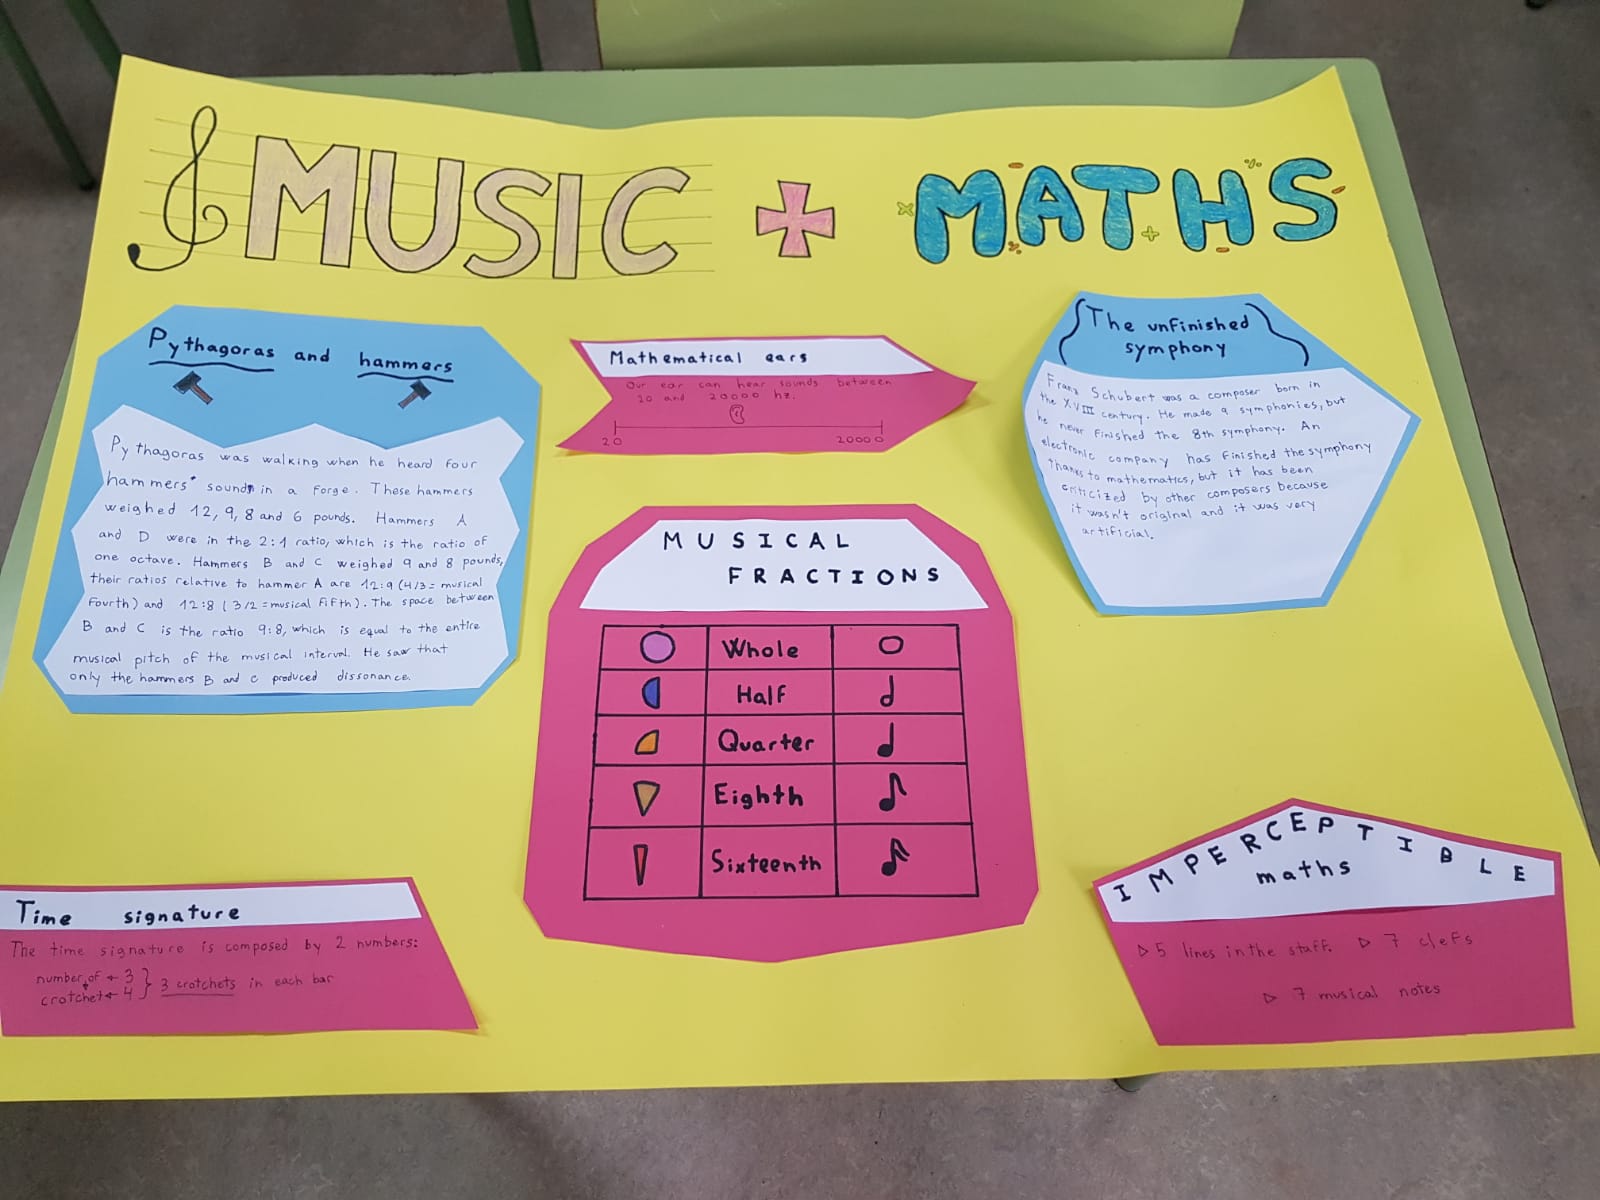 MUSIC + MATHS
Pythagoras and hammers
Pythagoras was walking when he heard four
hammers' sounds in a forge. These hammers
weighed 12, 9, 8 and 6 pounds. Hammers A
and D were in the 2:1 ratio, which is the ratio of
one octave. Hammers B and C weighed 9 and 8 pounds,
their ratios relative to hammer A are 12:9 (4/3= musical
fourth) and 12:8 (3/2=musical fifth). The space between
B and C is the ratio 9:8, which is equal to the entire
musical pitch of the musical interval. He saw that
only the hammers B and C produced dissonance.
Mathematical ears
Our ear can hear sounds between
20 and 20000 hz.
20 20000
(The unfinished
symphony)
Franz Schubert was a composer born in
the XVIII century. He made 9 symphonies, but
he never finished the 8th symphony. An
electronic company has finished the symphony
thanks to mathematics, but it has been
criticized by other composers because
it wasn't original and it was very
artificial.
MUSICAL
FRACTIONS
Whole
Half
Quarter
Eighth
Sixteenth
Time signature
The time signature is composed by 2 numbers:
number of ← 3
crotchet ← 4 } 3 crotchets in each bar
IMPERCEPTIBLE
maths
▷ 5 lines in the staff. ▷ 7 clefs
▷ 7 musical notes